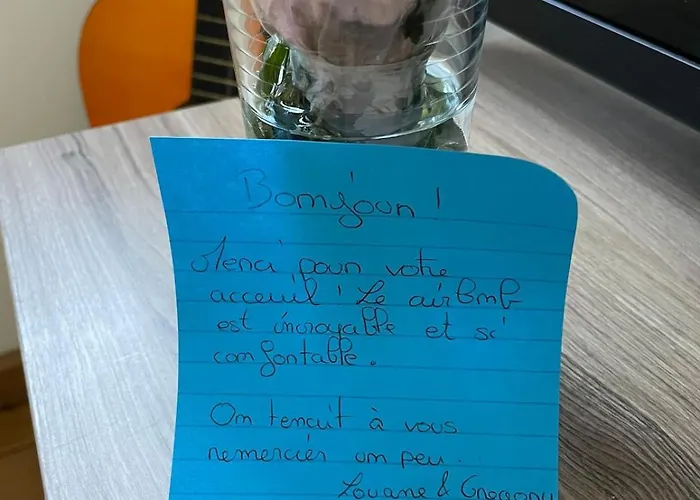 Bonjour !
Merci pour votre
acceuil ! Le airbnb
est incroyable et si
confortable.
On tenait à vous
remercier un peu.
Louane & Gregory